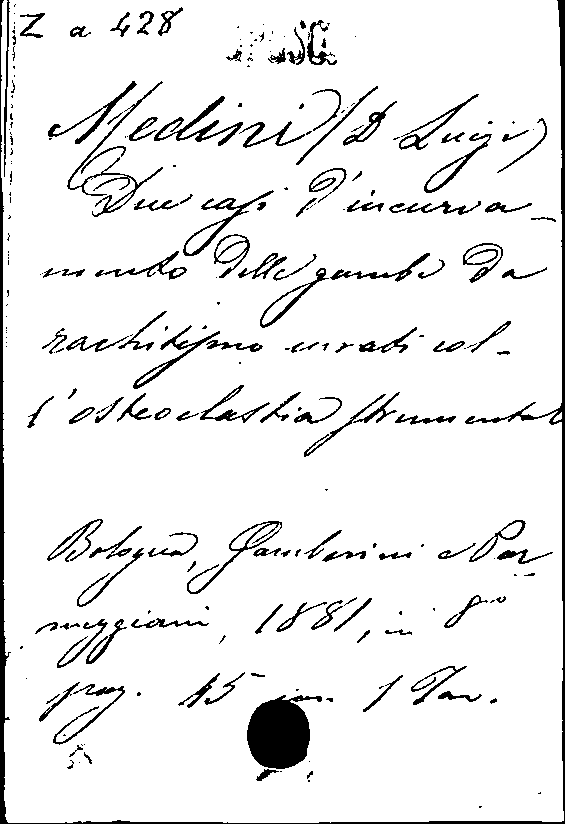 Z a 428
Medini (D Luigi)
Due casi d'incurva-
mento delle gambe da
rachitismo curati col-
l'osteoclastia strumental
Bologna, Gamberini e Par
meggiani, 1881, in 8vo
pag. 45 con 1 Tav.